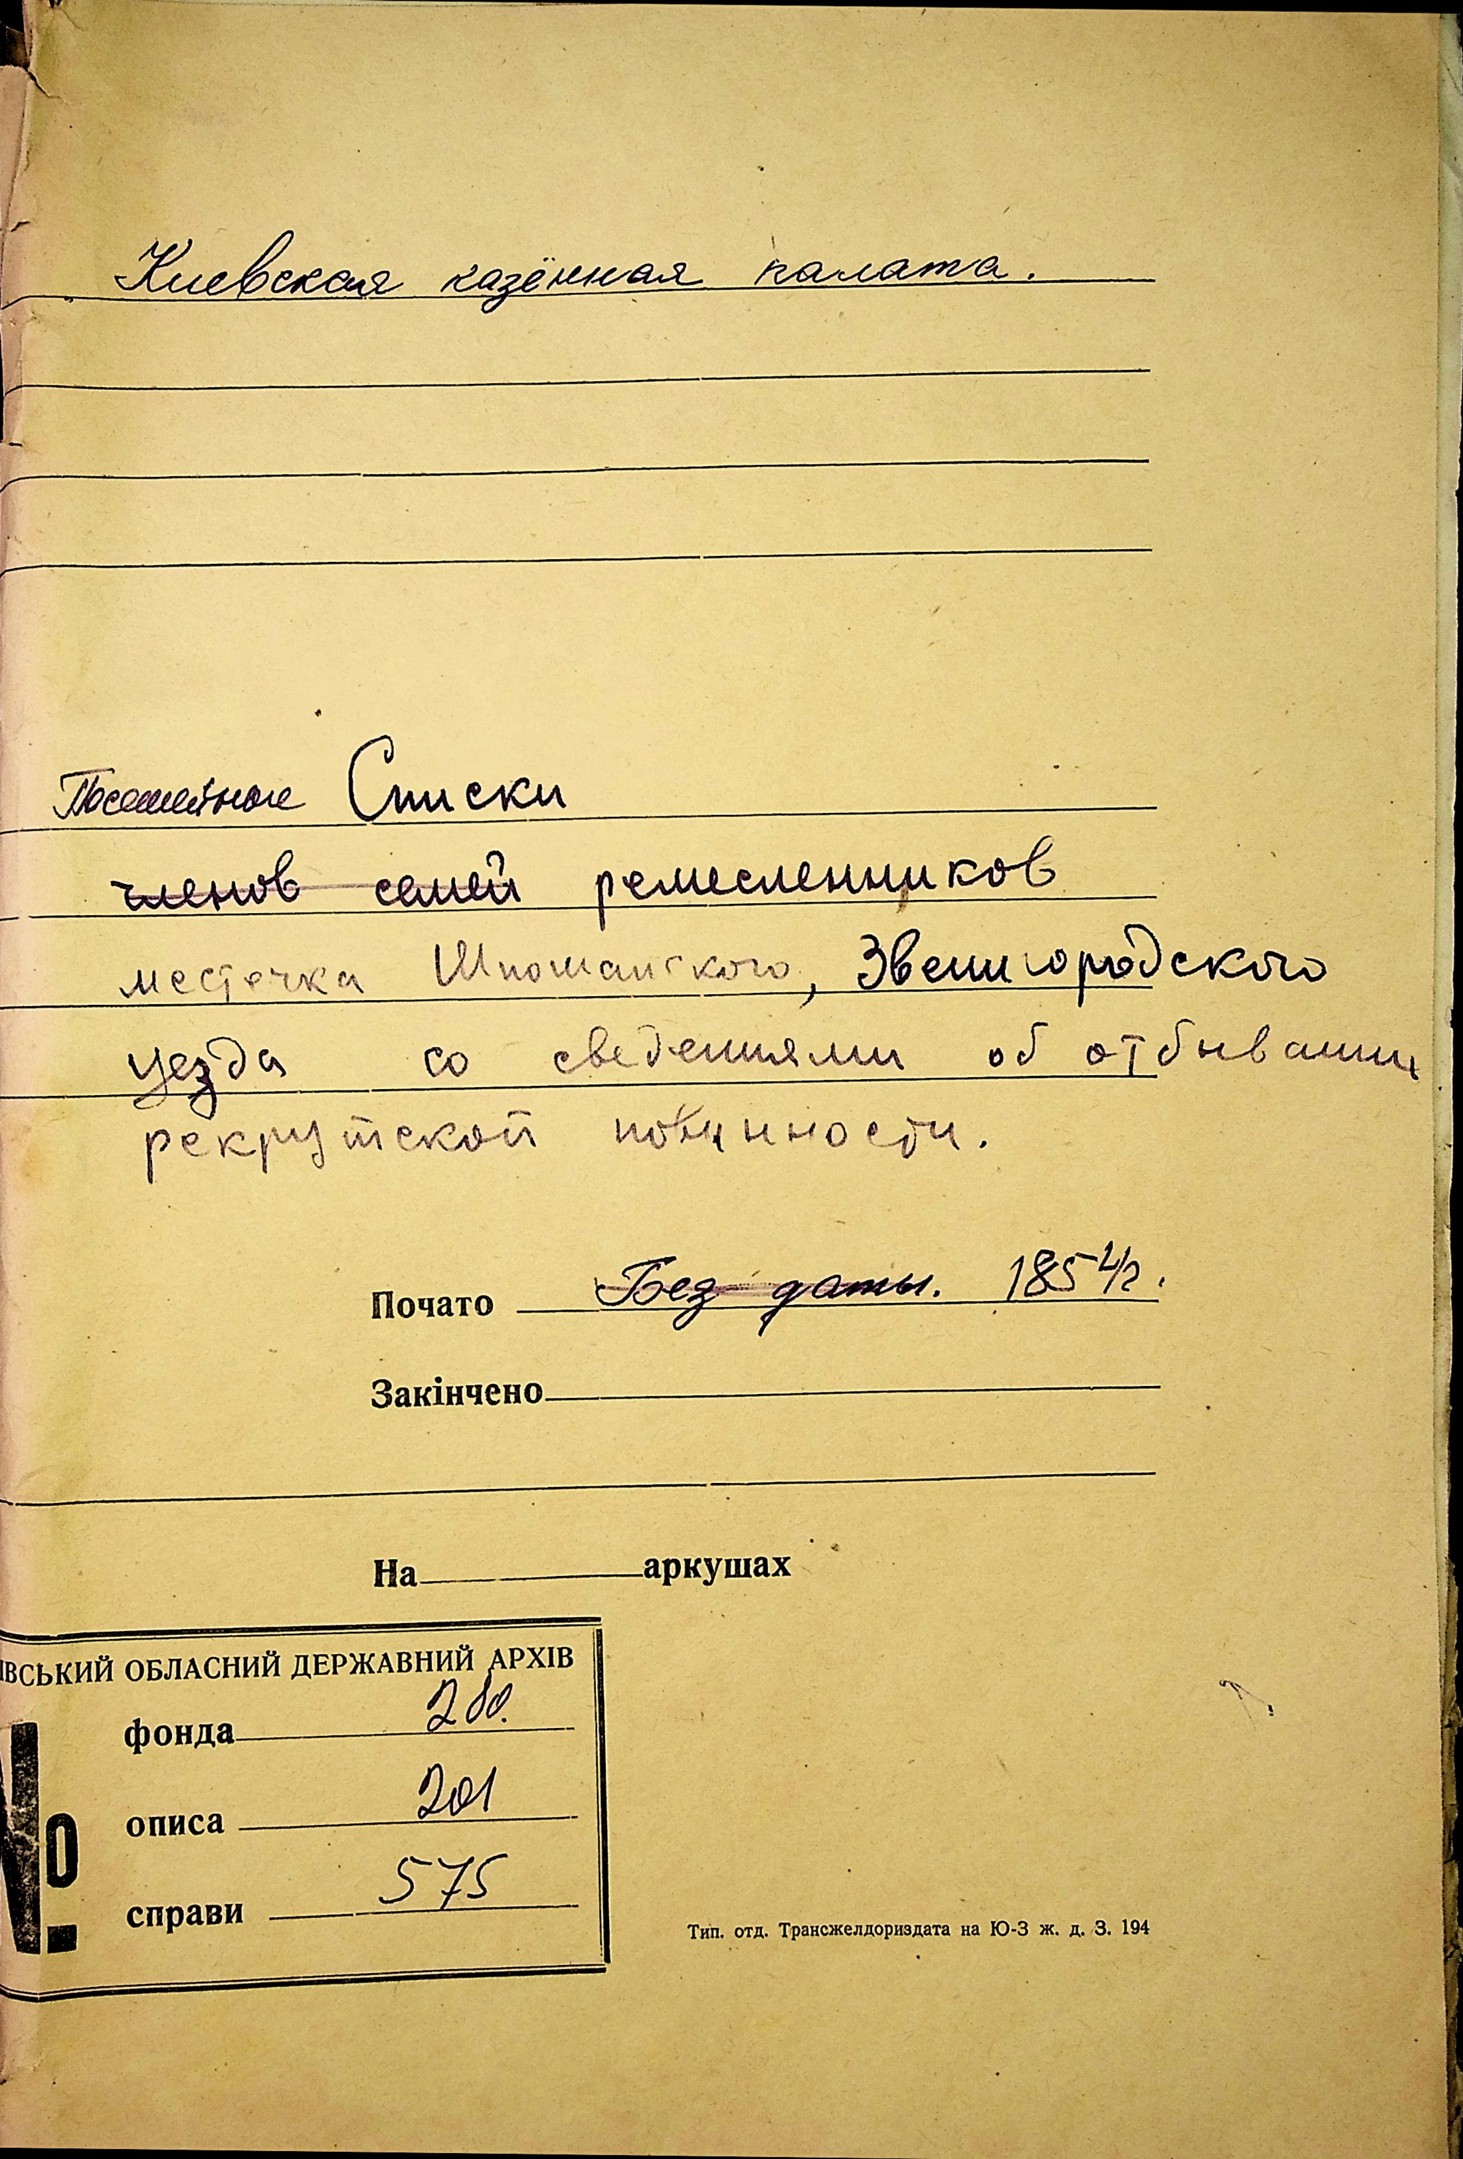 Киевская казённая палата.
Посемейные Списки
членов семей ремесленников
местечка Шполянского, Звенигородского
уезда со сведениями об отбывании
рекрутской повинности.
Почато Без даты. 1854 г.
Закінчено
На аркушах
ІВСЬКИЙ ОБЛАСНИЙ ДЕРЖАВНИЙ АРХІВ
фонда 280.
№ описа 201
справи 575
Тип. отд. Трансжелдориздата на Ю-З ж. д. З. 194